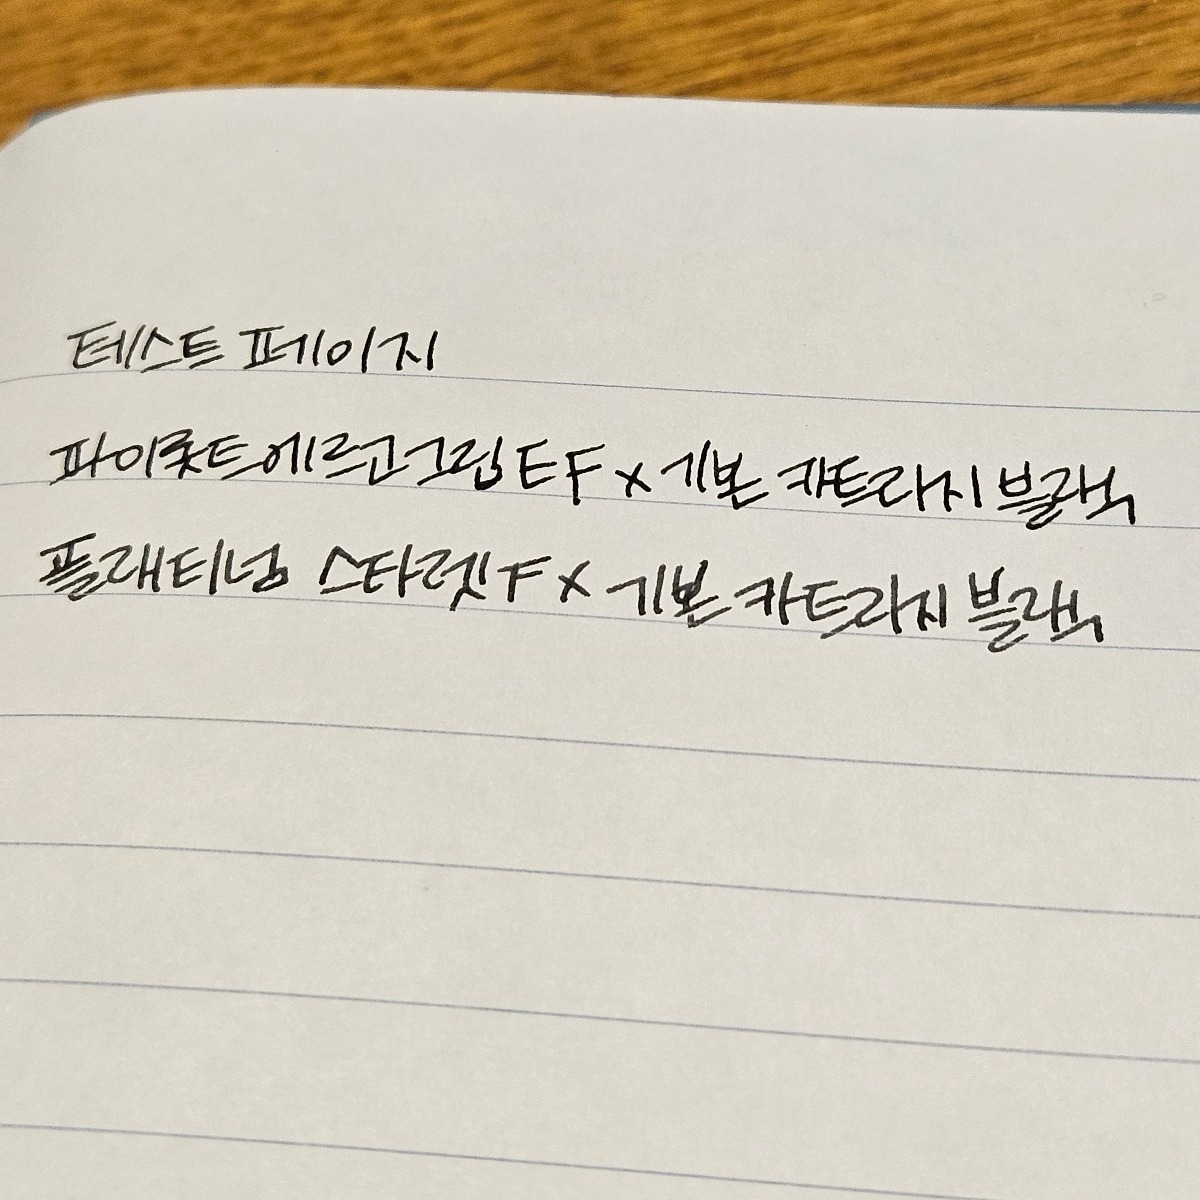 테스트 페이지
파이롯트 에르고그립 EF x 기본 카트라지 블랙
플래티넘 스타렛 F x 기본 카트라지 블랙